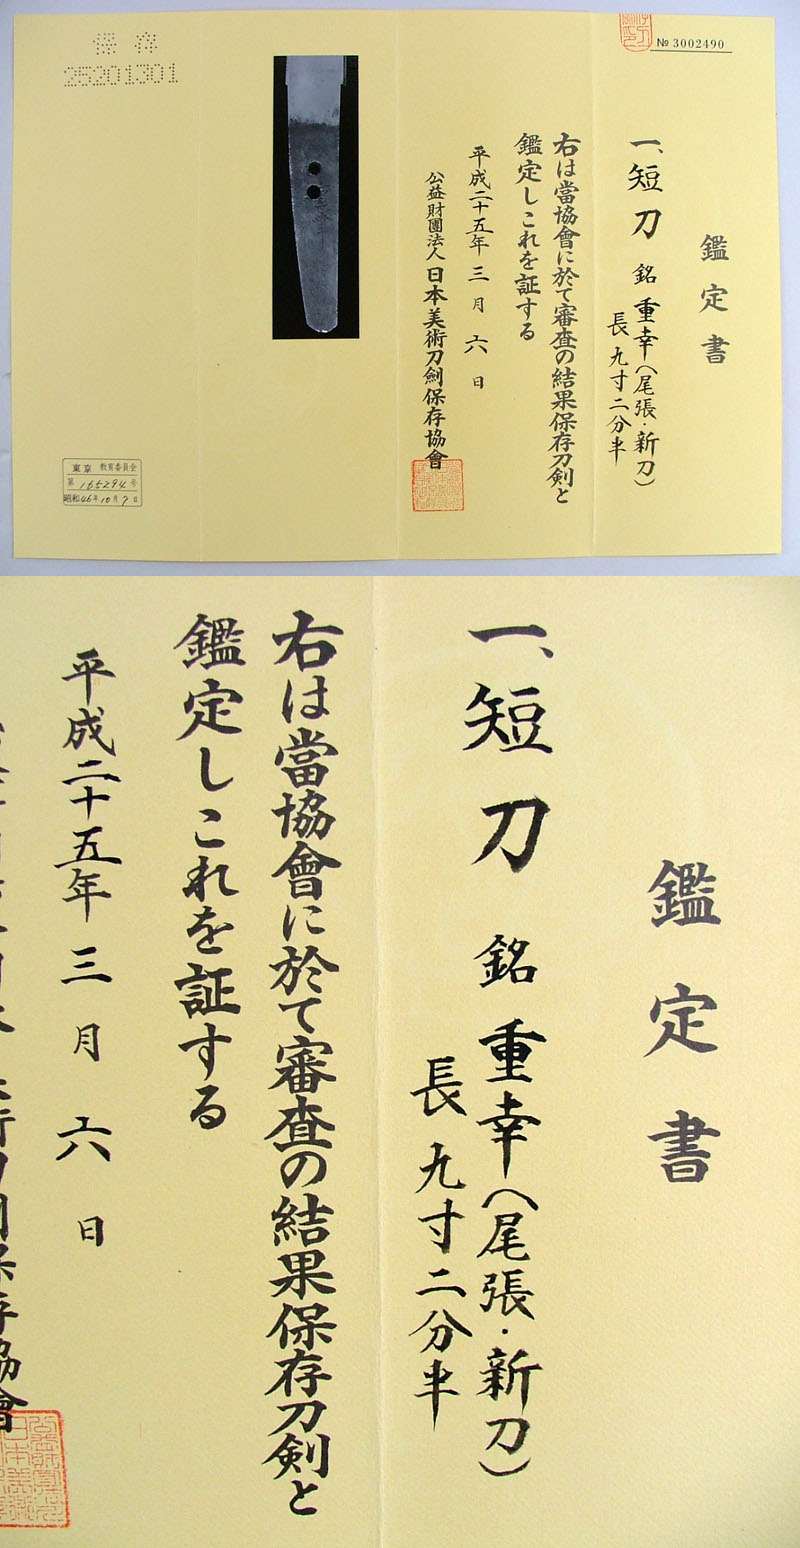 № 3002490
鑑定書
一、短刀 銘 重幸(尾張・新刀)
長 九寸二分半
右は當協會に於て審査の結果保存刀剣と
鑑定しこれを証する
平成二十五年 三 月 六 日
公益財團法人 日本美術刀劍保存協會
保存
25201301
東京 教育委員会
第 165294 号
昭和46年10月9日
鑑定書
一、短刀 銘 重幸(尾張・新刀)
長 九寸二分半
右は當協會に於て審査の結果保存刀剣と
鑑定しこれを証する
平成二十五年 三 月 六 日